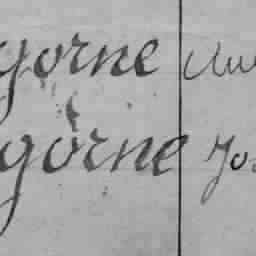 gorne
gorne Jos